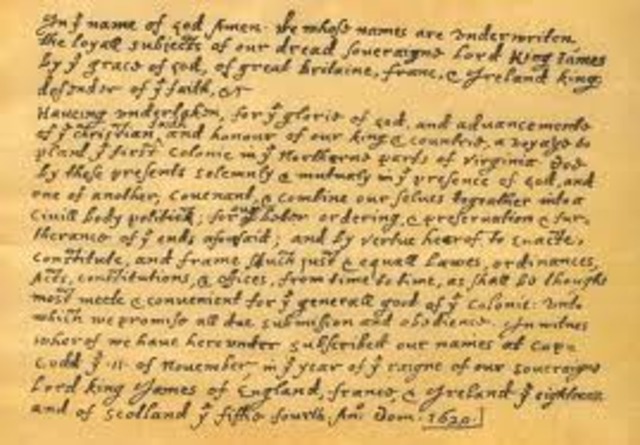 In yͤ name of god Amen. We whose names are underwriten,
the loyall subjects of our dread soveraigne Lord King James
by yͤ grace of god, of great Britaine, franc, & Ireland king,
defender of yͤ faith, &c
Haveing undertaken, for yͤ glorie of god, and advancemente
of yͤ christian faith and honour of our king & countrie, a voyage to
plant yͤ first colonie in yͤ Northerne parts of virginia doe
by these presents solemnly & mutualy in yͤ presence of god, and
one of another, covenant, & combine our selves togeather into a
Civill body politick; for our better ordering, & preservation & fur-
therance of yͤ ends aforesaid; and by vertue hearof to enacte,
constitute, and frame shuch just & equall Lawes, ordinances,
Acts, constitutions, & offices, from time to time, as shall be thought
most meete & convenient for yͤ generall good of yͤ colonie: unto
which we promise all due submission and obedience. In witnes
wherof we have hereunder subscribed our names at Cap=
Codd yͤ ·11· of November in yͤ year of yͤ raigne of our soveraigne
Lord king James of England, france, & Ireland yͤ eighteenth
and of scotland yͤ fiftie fourth. Anͦ: Dom. 1620.